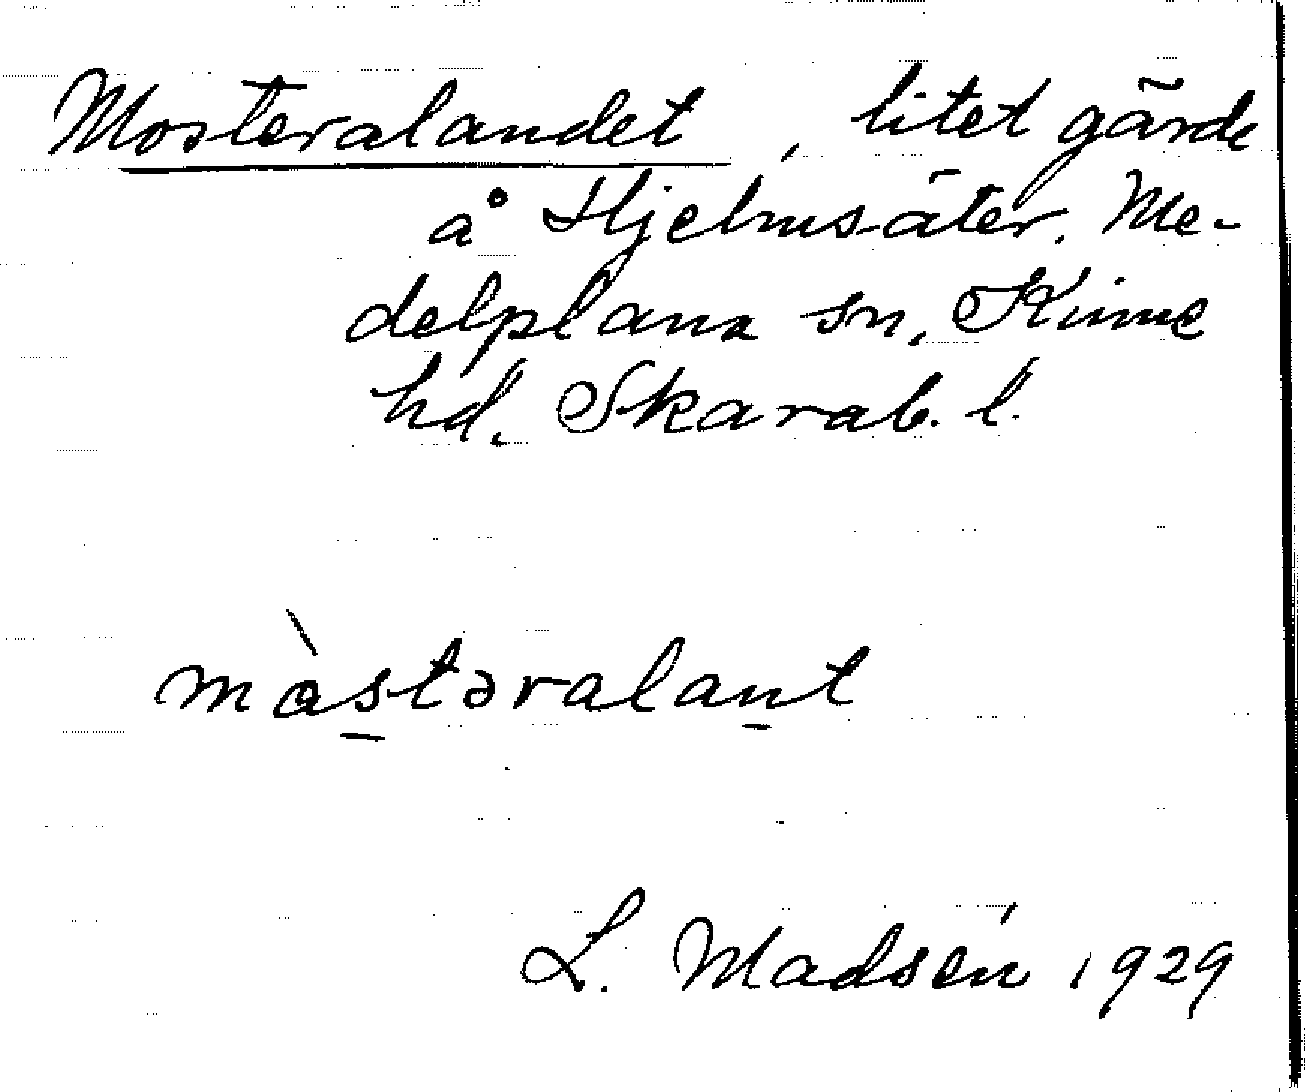 Mosteralandet, litet gärde
å Hjelmsäter. Me-
delplana sn, Kinne
hd. Skarab. l.
mòstəralant
L. Madsén 1929